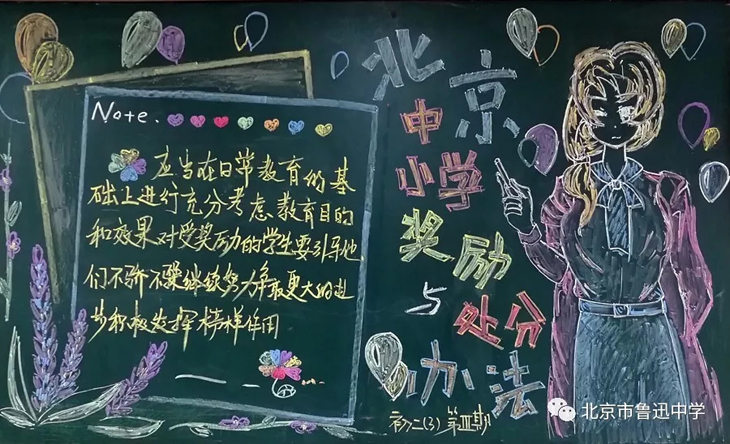 Note.
应当在日常教育的基
础上进行充分考虑教育目的
和效果对受奖励的学生要引导他
们不骄不躁继续努力争取更大的进
步积极发挥榜样作用
北京
中
小学
奖励
与处分
办法
初二(3) 第三期
北京市鲁迅中学